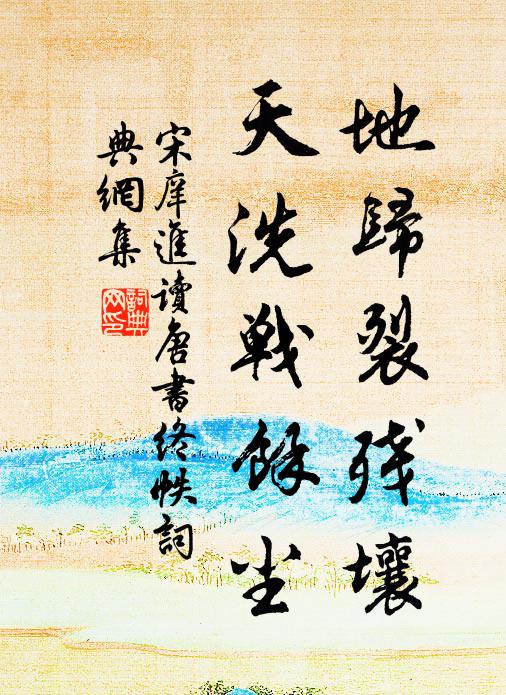 地歸裂残壤
天洗戰餘尘
宋庠進讀唐書終帙詞
典網集
詞典网印